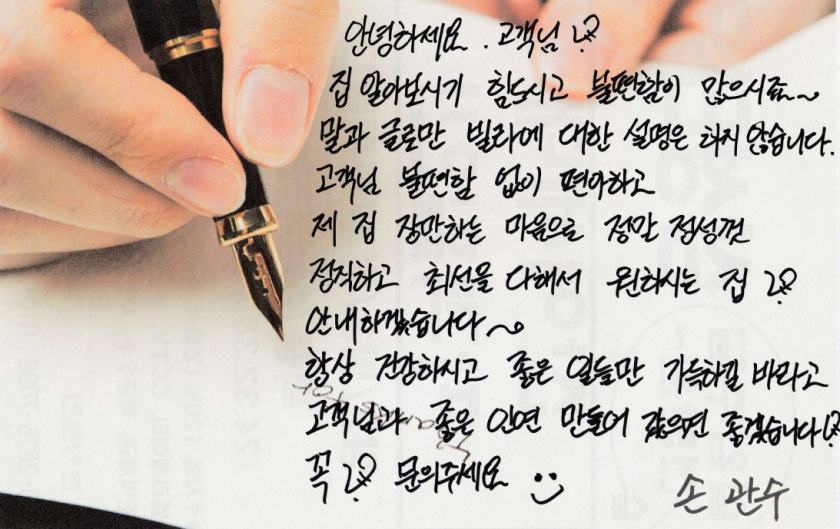 안녕하세요. 고객님!?
집 알아보시기 힘드시고 불편함이 많으시죠~
말과 글로만 빌라에 대한 설명은 하지 않습니다.
고객님 불편함 없이 편아하고
제 집 장만하는 마음으로 정말 정성껏
정직하고 최선을 다해서 원하시는 집 !?
안내하겠습니다~
항상 건강하시고 좋은 일들만 가득하길 바라고
고객님과 좋은 인연 만들어 갔으면 좋겠습니다!?
꼭 !? 문의주세요 :)
손관수